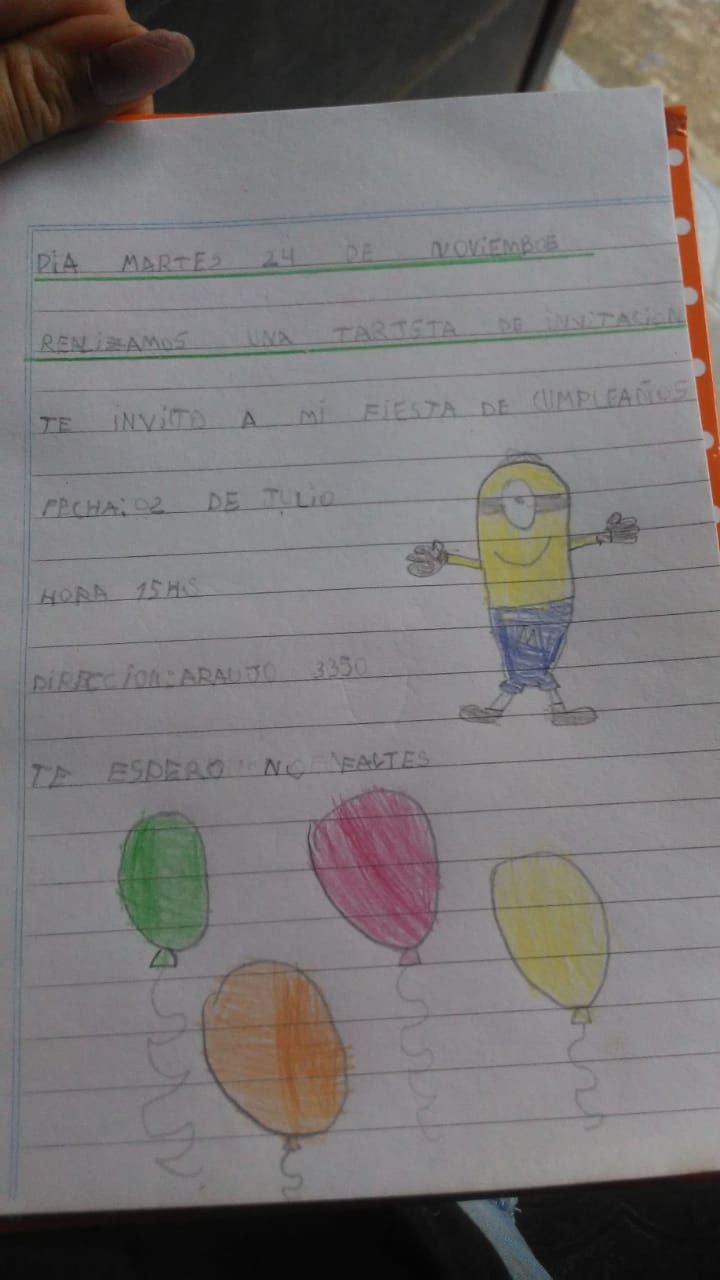 DIA MARTES 24 DE NOVIEMBOE
RENLIZAMOS UNA TARTETA DE INVITACION
TE INVITO A MI FIESTA DE CUMPLEAÑOS
FECHA: 02 DE JULIO
HORA 15 HS
DIRECCION: ARAUJO 3350
TE ESPERO NO FALTES